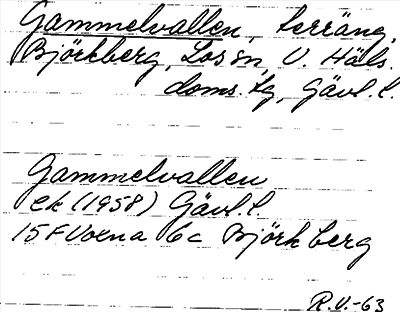 Gammelvallen, terräng,
Björkberg, Los sn, V. Häls.
doms. tg, Gävl. l.
Gammelvallen
ek (1958) Gävl. l.
15F Voxna 6c Björkberg
R.V.-63